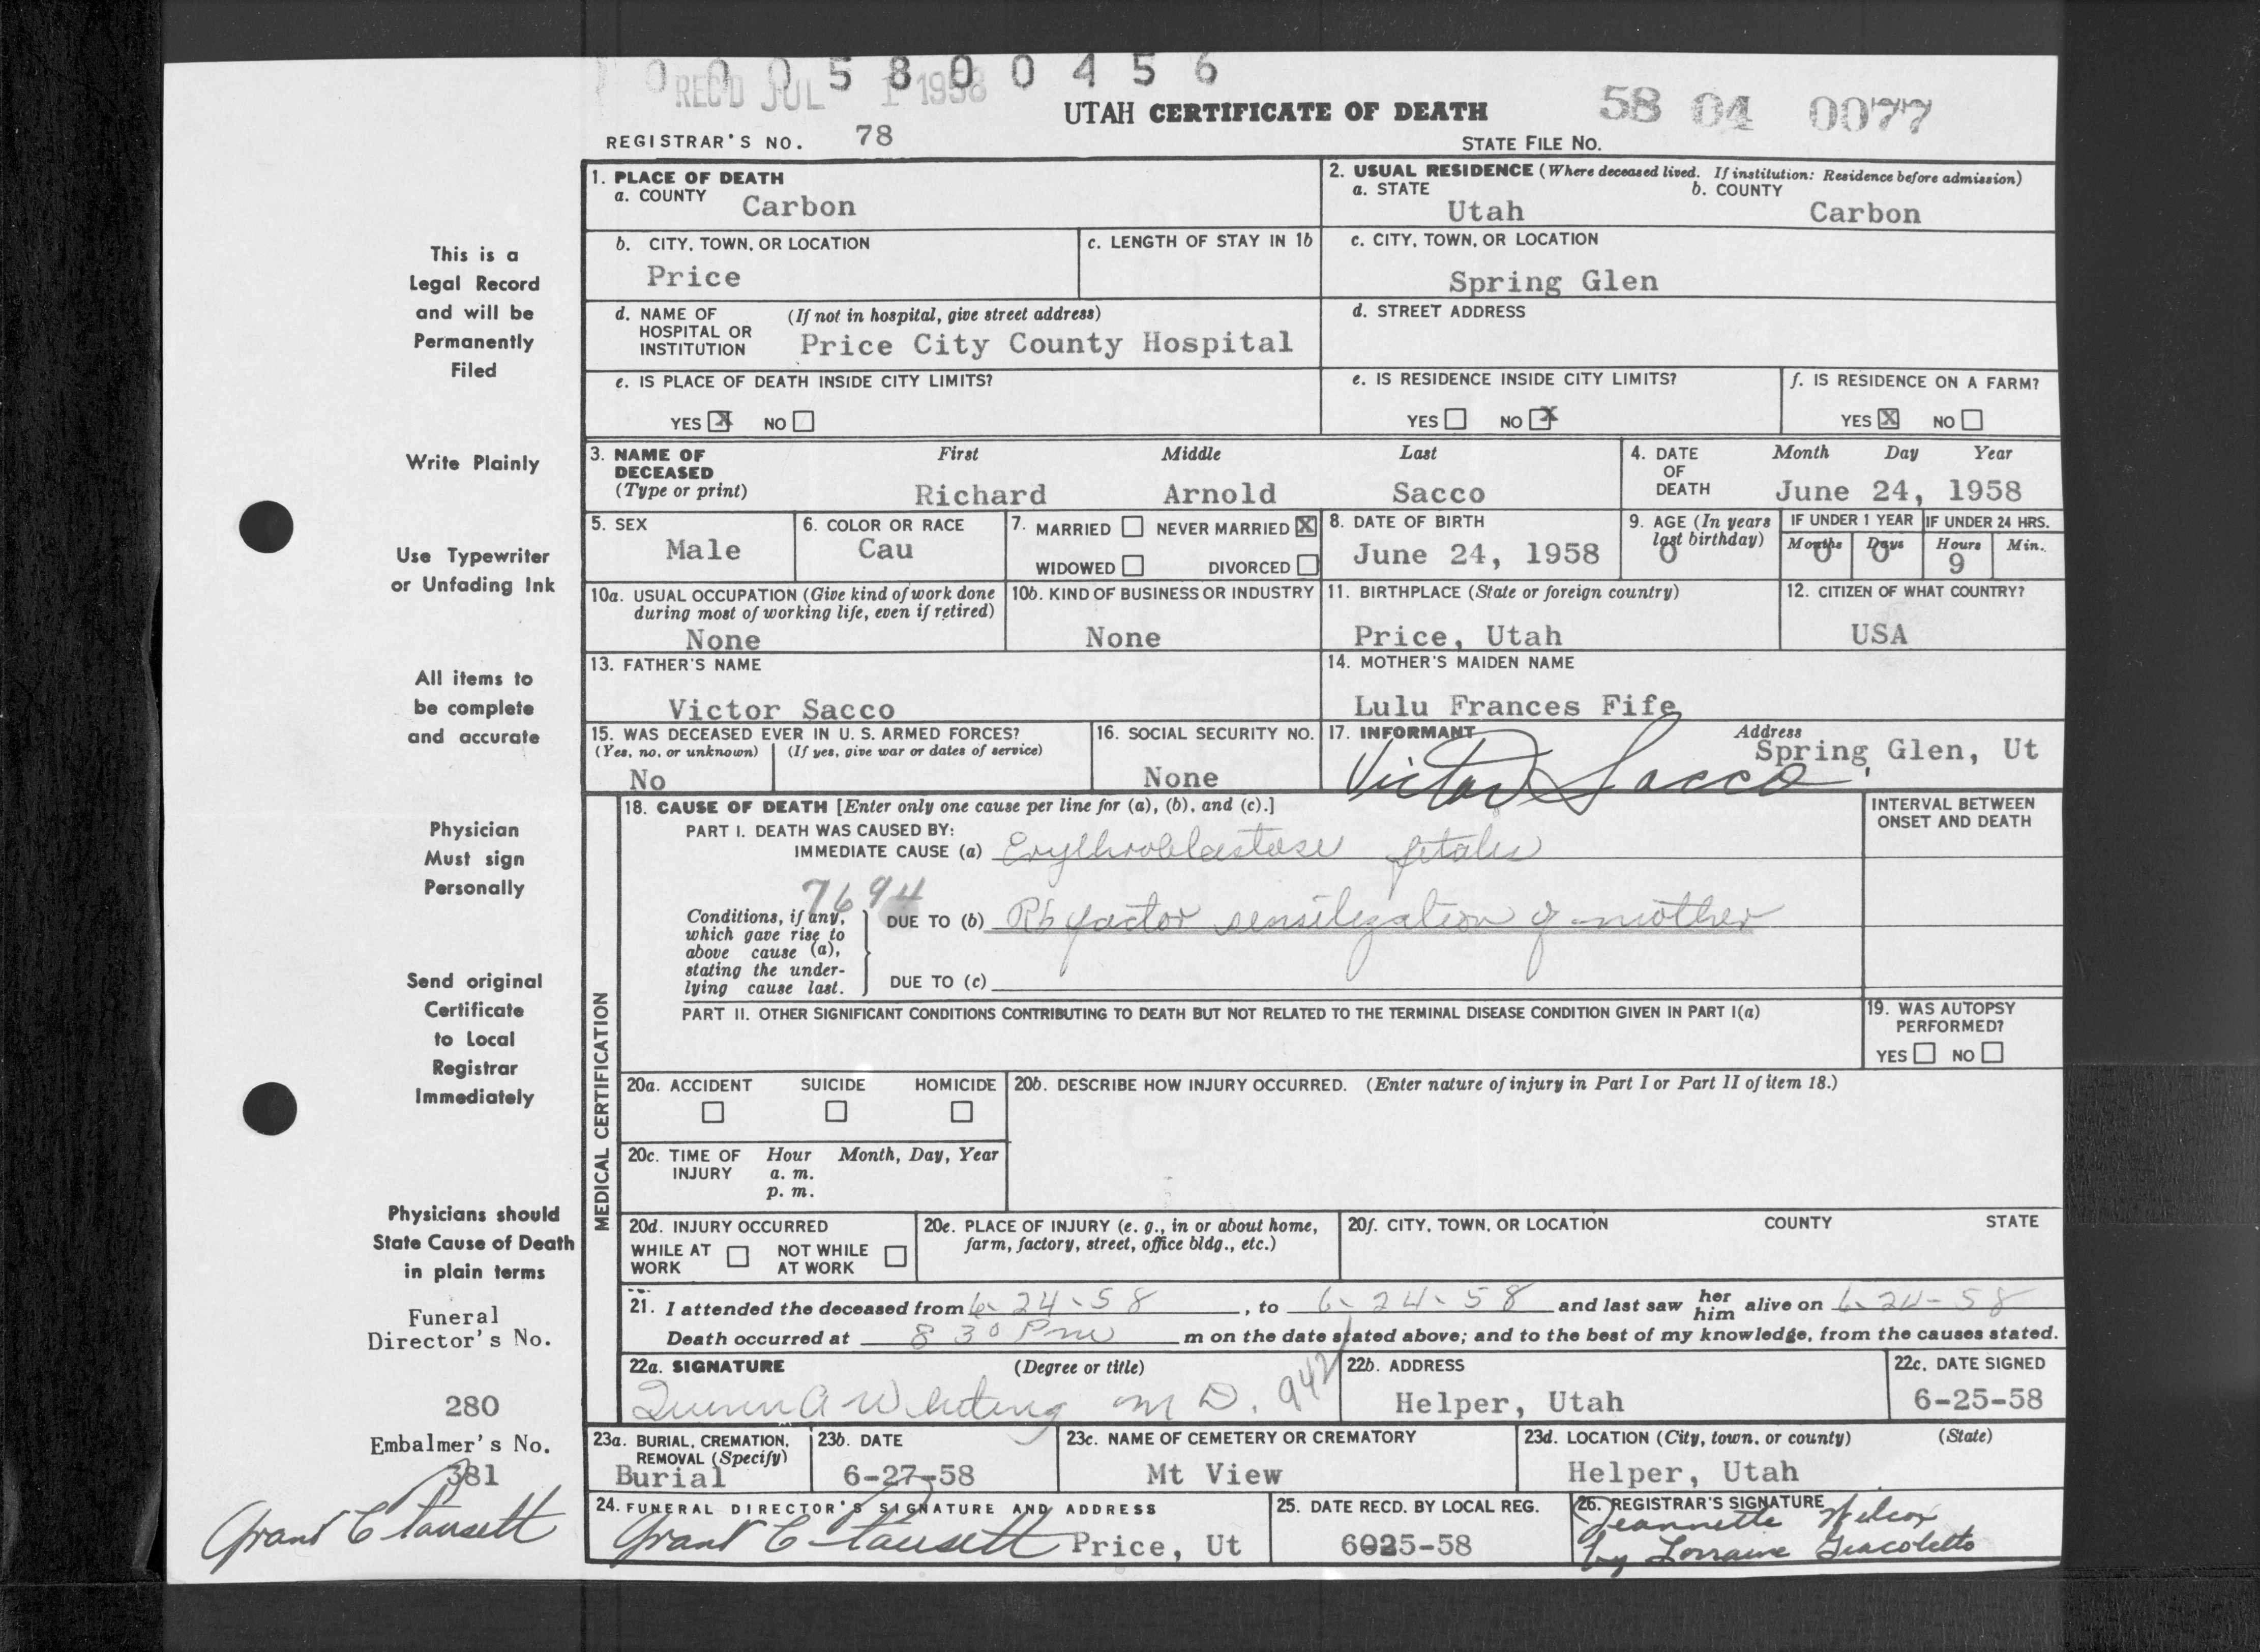 0 0 0 5 8 0 0 4 5 6
REC'D JUL 1 1958
UTAH CERTIFICATE OF DEATH
58 04 0077
REGISTRAR'S NO. 78
STATE FILE NO.
1. PLACE OF DEATH
a. COUNTY Carbon
2. USUAL RESIDENCE (Where deceased lived. If institution: Residence before admission)
a. STATE Utah b. COUNTY Carbon
b. CITY, TOWN, OR LOCATION Price
c. LENGTH OF STAY IN 1b
c. CITY, TOWN, OR LOCATION Spring Glen
d. NAME OF HOSPITAL OR INSTITUTION (If not in hospital, give street address) Price City County Hospital
d. STREET ADDRESS
e. IS PLACE OF DEATH INSIDE CITY LIMITS?
YES X NO
e. IS RESIDENCE INSIDE CITY LIMITS?
YES NO X
f. IS RESIDENCE ON A FARM?
YES X NO
3. NAME OF DECEASED (Type or print)
First Middle Last
Richard Arnold Sacco
4. DATE OF DEATH
Month Day Year
June 24, 1958
5. SEX Male
6. COLOR OR RACE Cau
7. MARRIED NEVER MARRIED X
WIDOWED DIVORCED
8. DATE OF BIRTH June 24, 1958
9. AGE (In years last birthday) 0
IF UNDER 1 YEAR
Months 0 Days 0
IF UNDER 24 HRS.
Hours 9 Min.
10a. USUAL OCCUPATION (Give kind of work done during most of working life, even if retired)
None
10b. KIND OF BUSINESS OR INDUSTRY
None
11. BIRTHPLACE (State or foreign country)
Price, Utah
12. CITIZEN OF WHAT COUNTRY?
USA
13. FATHER'S NAME
Victor Sacco
14. MOTHER'S MAIDEN NAME
Lulu Frances Fife
15. WAS DECEASED EVER IN U. S. ARMED FORCES?
(Yes, no, or unknown) (If yes, give war or dates of service)
No
16. SOCIAL SECURITY NO.
None
17. INFORMANT Address
Victor Sacco Spring Glen, Ut
MEDICAL CERTIFICATION
18. CAUSE OF DEATH [Enter only one cause per line for (a), (b), and (c).]
INTERVAL BETWEEN ONSET AND DEATH
PART I. DEATH WAS CAUSED BY:
IMMEDIATE CAUSE (a) Erythroblastose fetales
7694
Conditions, if any, which gave rise to above cause (a), stating the underlying cause last.
DUE TO (b) Rh factor sensitization of mother
DUE TO (c)
PART II. OTHER SIGNIFICANT CONDITIONS CONTRIBUTING TO DEATH BUT NOT RELATED TO THE TERMINAL DISEASE CONDITION GIVEN IN PART I(a)
19. WAS AUTOPSY PERFORMED?
YES NO
20a. ACCIDENT SUICIDE HOMICIDE
20b. DESCRIBE HOW INJURY OCCURRED. (Enter nature of injury in Part I or Part II of item 18.)
20c. TIME OF INJURY Hour Month, Day, Year
a. m.
p. m.
20d. INJURY OCCURRED
WHILE AT WORK NOT WHILE AT WORK
20e. PLACE OF INJURY (e. g., in or about home, farm, factory, street, office bldg., etc.)
20f. CITY, TOWN, OR LOCATION COUNTY STATE
21. I attended the deceased from 6-24-58, to 6-24-58 and last saw her him alive on 6-24-58
Death occurred at 8 30 Pm m on the date stated above; and to the best of my knowledge, from the causes stated.
22a. SIGNATURE (Degree or title)
Quinn A Whiting M D. 942
22b. ADDRESS
Helper, Utah
22c. DATE SIGNED
6-25-58
23a. BURIAL, CREMATION, REMOVAL (Specify)
Burial
23b. DATE
6-27-58
23c. NAME OF CEMETERY OR CREMATORY
Mt View
23d. LOCATION (City, town, or county) (State)
Helper, Utah
24. FUNERAL DIRECTOR'S SIGNATURE AND ADDRESS
Grant C Fausett Price, Ut
25. DATE RECD. BY LOCAL REG.
6025-58
26. REGISTRAR'S SIGNATURE
Jeannette Wilcox
by Lorraine Giacoletto
This is a
Legal Record
and will be
Permanently
Filed
Write Plainly
Use Typewriter
or Unfading Ink
All items to
be complete
and accurate
Physician
Must sign
Personally
Send original
Certificate
to Local
Registrar
Immediately
Physicians should
State Cause of Death
in plain terms
Funeral
Director's No.
280
Embalmer's No.
381
Grant C Fausett